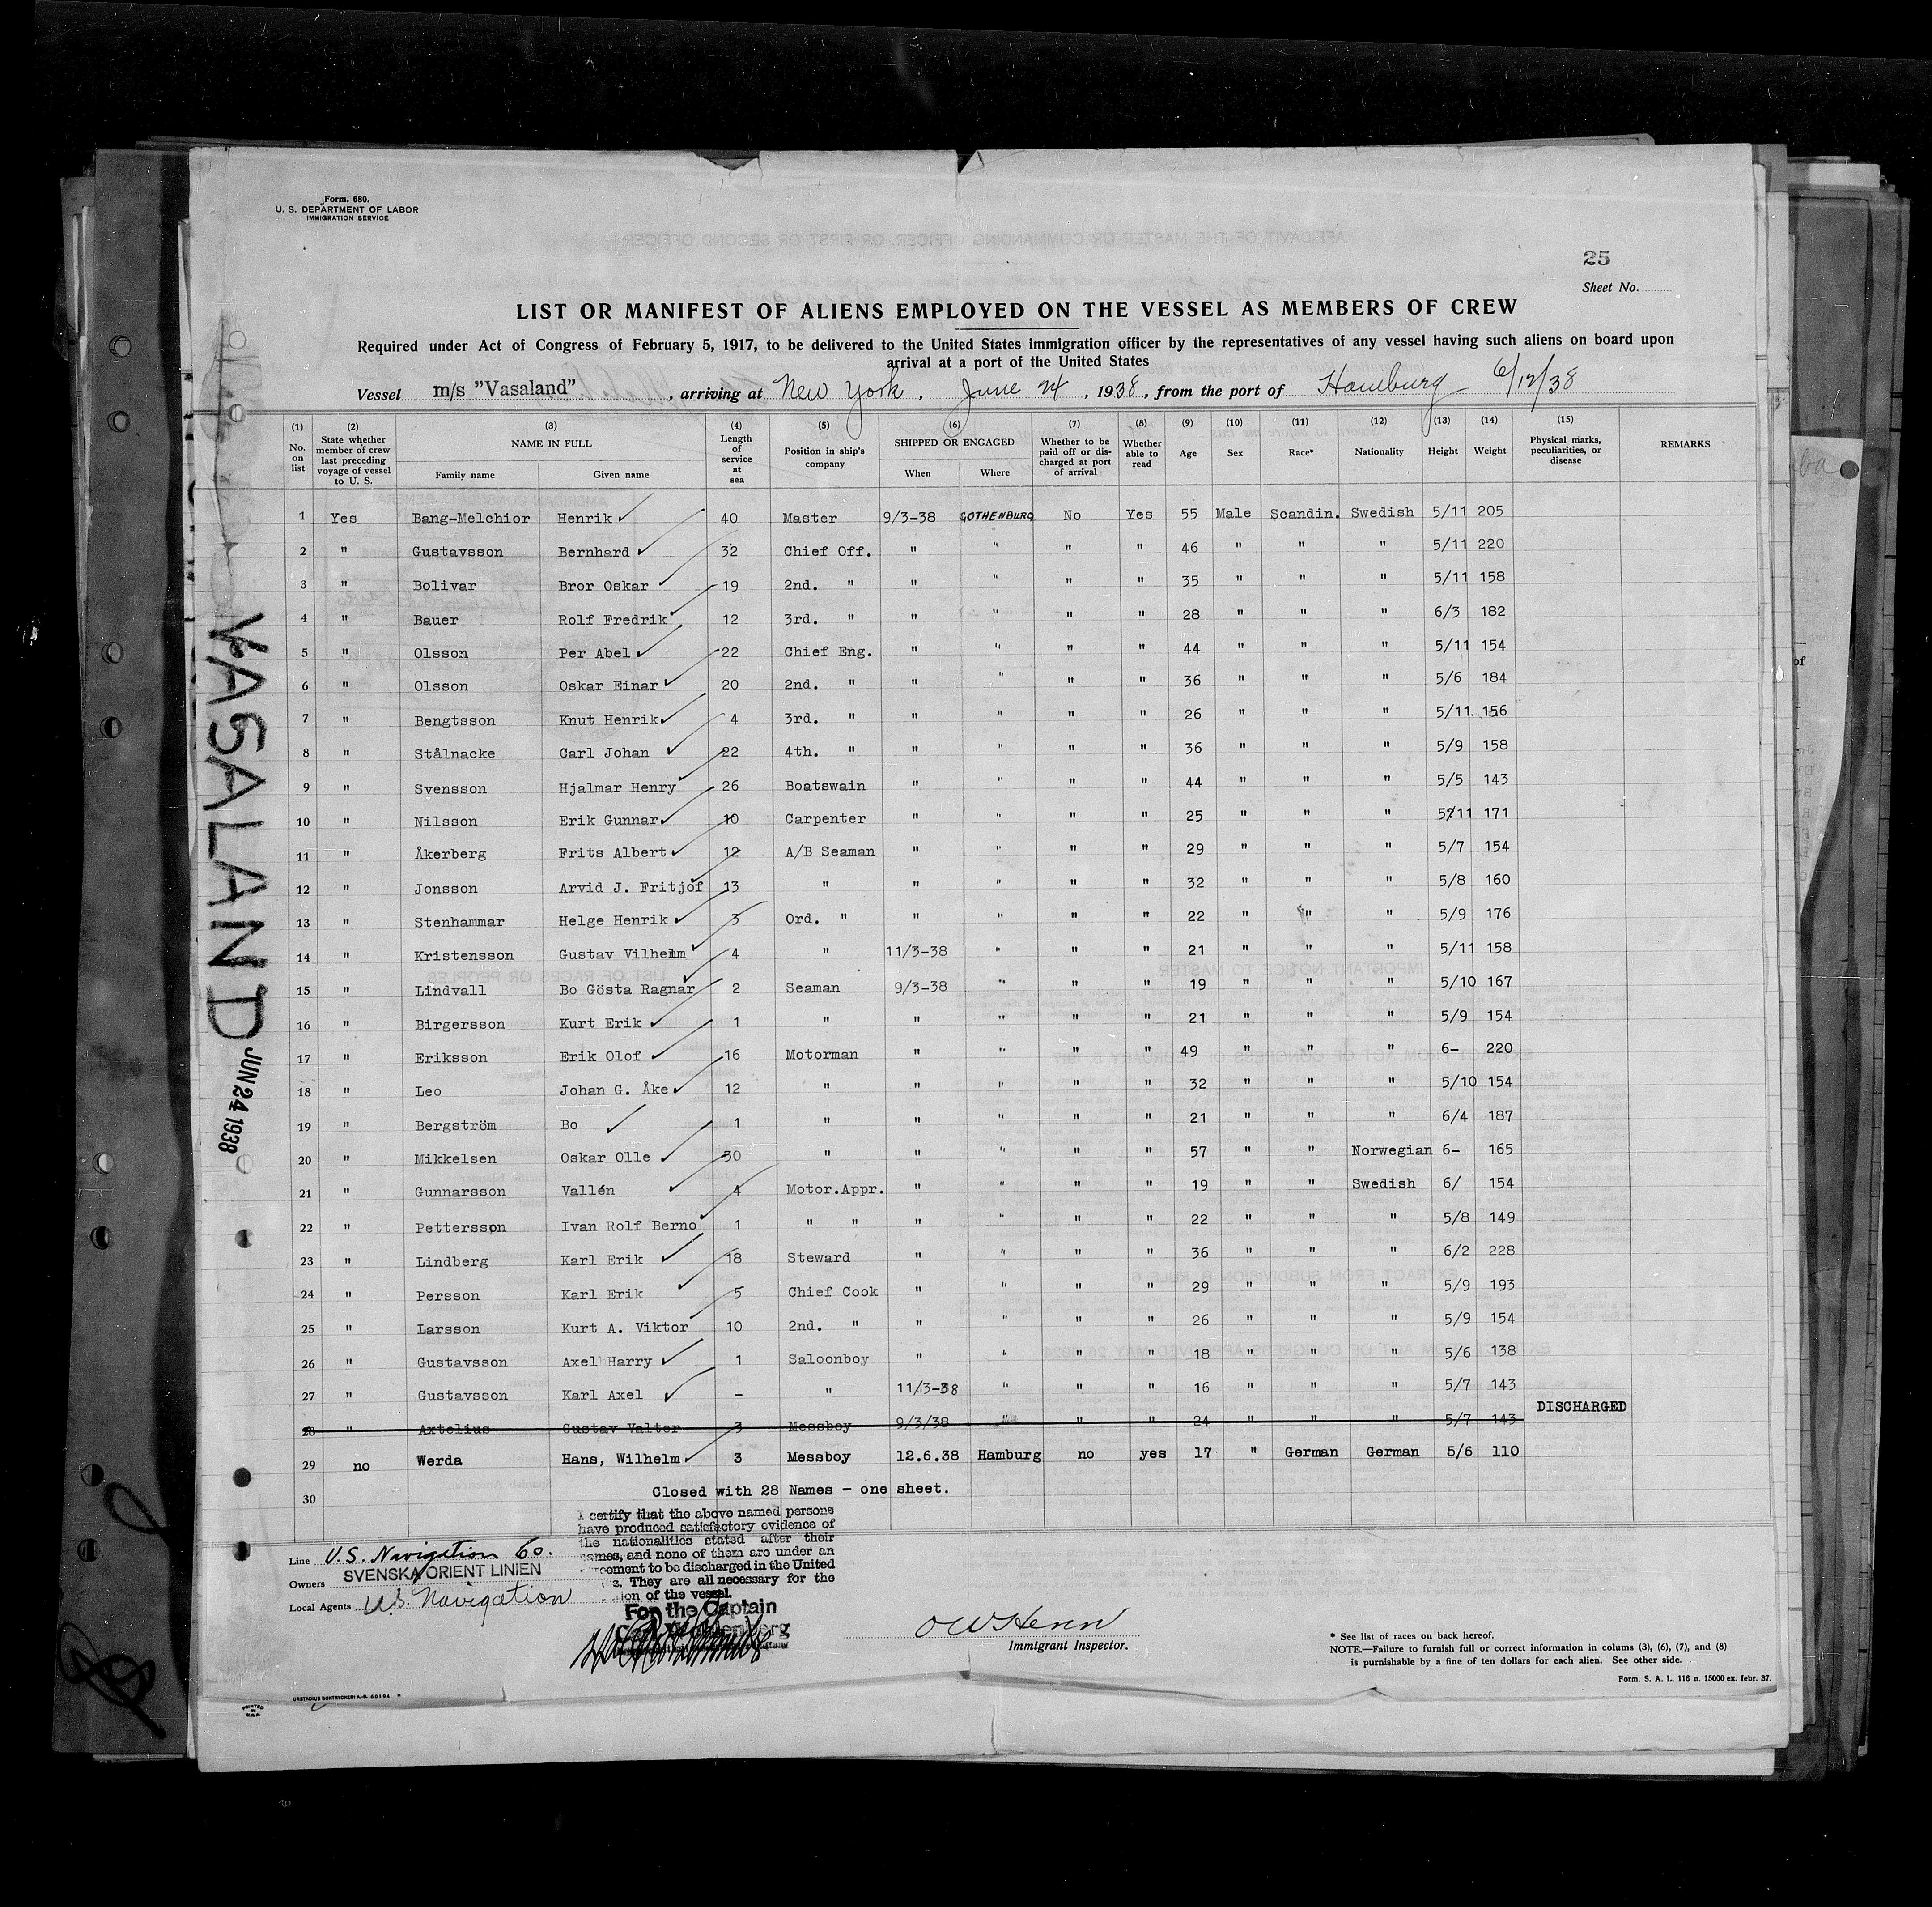 Form. 680.
U. S. DEPARTMENT OF LABOR
IMMIGRATION SERVICE
25
Sheet No.
LIST OR MANIFEST OF ALIENS EMPLOYED ON THE VESSEL AS MEMBERS OF CREW
Required under Act of Congress of February 5, 1917, to be delivered to the United States immigration officer by the representatives of any vessel having such aliens on board upon
arrival at a port of the United States
Vessel m/s "Vasaland", arriving at New York, June 24, 1938, from the port of Hamburg 6/12/38
(1) No. on list (2) State whether member of crew last preceding voyage of vessel to U. S. (3) NAME IN FULL Family name Given name (4) Length of service at sea (5) Position in ship's company (6) SHIPPED OR ENGAGED When Where (7) Whether to be paid off or discharged at port of arrival (8) Whether able to read (9) Age (10) Sex (11) Race* (12) Nationality (13) Height (14) Weight (15) Physical marks, peculiarities, or disease REMARKS
1 Yes Bang-Melchior Henrik 40 Master 9/3-38 GOTHENBURG No Yes 55 Male Scandin. Swedish 5/11 205
2 " Gustavsson Bernhard 32 Chief Off. " " " " 46 " " " 5/11 220
3 " Bolivar Bror Oskar 19 2nd. " " " " " 35 " " " 5/11 158
4 " Bauer Rolf Fredrik 12 3rd. " " " " " 28 " " " 6/3 182
5 " Olsson Per Abel 22 Chief Eng. " " " " 44 " " " 5/11 154
6 " Olsson Oskar Einar 20 2nd. " " " " " 36 " " " 5/6 184
7 " Bengtsson Knut Henrik 4 3rd. " " " " " 26 " " " 5/11 156
8 " Stålnacke Carl Johan 22 4th. " " " " " 36 " " " 5/9 158
9 " Svensson Hjalmar Henry 26 Boatswain " " " " 44 " " " 5/5 143
10 " Nilsson Erik Gunnar 10 Carpenter " " " " 25 " " " 5/11 171
11 " Åkerberg Frits Albert 12 A/B Seaman " " " " 29 " " " 5/7 154
12 " Jonsson Arvid J. Fritjof 13 " " " " " 32 " " " 5/8 160
13 " Stenhammar Helge Henrik 3 Ord. " " " " " 22 " " " 5/9 176
14 " Kristensson Gustav Vilhelm 4 " 11/3-38 " " " 21 " " " 5/11 158
15 " Lindvall Bo Gösta Ragnar 2 Seaman 9/3-38 " " " 19 " " " 5/10 167
16 " Birgersson Kurt Erik 1 " " " " " 21 " " " 5/9 154
17 " Eriksson Erik Olof 16 Motorman " " " " 49 " " " 6- 220
18 " Leo Johan G. Åke 12 " " " " " 32 " " " 5/10 154
19 " Bergström Bo 1 " " " " " 21 " " " 6/4 187
20 " Mikkelsen Oskar Olle 30 " " " " " 57 " " Norwegian 6- 165
21 " Gunnarsson Vallén 4 Motor.Appr. " " " " 19 " " Swedish 6/ 154
22 " Pettersson Ivan Rolf Berno 1 " " " " " " 22 " " " 5/8 149
23 " Lindberg Karl Erik 18 Steward " " " " 36 " " " 6/2 228
24 " Persson Karl Erik 5 Chief Cook " " " " 29 " " " 5/9 193
25 " Larsson Kurt A. Viktor 10 2nd. " " " " " 26 " " " 5/9 154
26 " Gustavsson Axel Harry 1 Saloonboy " " " " 18 " " " 5/6 138
27 " Gustavsson Karl Axel - " 11/3-38 " " " 16 " " " 5/7 143
28 " Axtelius Gustav Valter 3 Messboy 9/3/38 " " " 24 " " " 5/7 143 DISCHARGED
29 no Werda Hans, Wilhelm 3 Messboy 12.6.38 Hamburg no yes 17 " German German 5/6 110
30 Closed with 28 Names - one sheet.
I certify that the above named persons
have produced satisfactory evidence of
the nationalities stated after their
names, and none of them are under an
agreement to be discharged in the United
They are all necessary for the
of the vessel.
For the Captain
Line U.S. Navigation Co.
Owners SVENSKA ORIENT LINIEN
Local Agents U.S. Navigation
OWHenn
Immigrant Inspector.
* See list of races on back hereof.
NOTE.—Failure to furnish full or correct information in colums (3), (6), (7), and (8)
is purnishable by a fine of ten dollars for each alien. See other side.
Form. S. A. L. 116 n. 15000 ex. febr. 37.
ORSTADIUS BOKTRYCKERI A.-B. 60194
PRINTED IN U.S.A.
VASALAND
JUN 24 1938